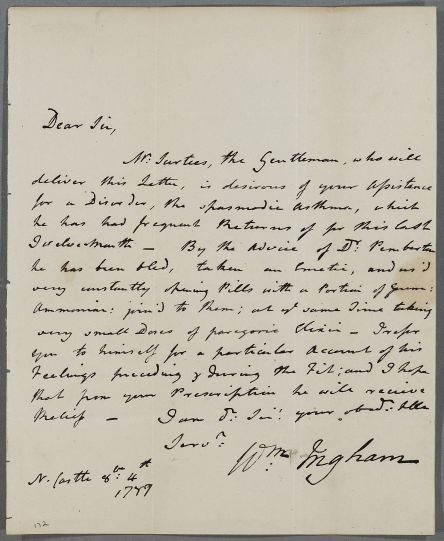 Dear Sir,
Mr: Surtees, the Gentleman, who will
deliver this Letter, is desirous of your Assistance
for a Disorder, the spasmodic Asthma, which
he has had frequent Returns of for this last
Twelvemonth — By the Advice of Dr: Pemberton
he has been bled, taken an Emetic, and us'd
very constantly opening Pills with a Portion of Gum:
Ammoniac: join'd to them; at ye same Time taking
very small Doses of paregoric Elixir — I refer
you to himself for a particular Account of his
Feelings preceding & during the Fit; and I hope
that from your Prescription he will receive
Relief — I am Dr: Sir: your obedt: hble
Servt:
Wm: Ingham
N. Castle 4th
1787
172